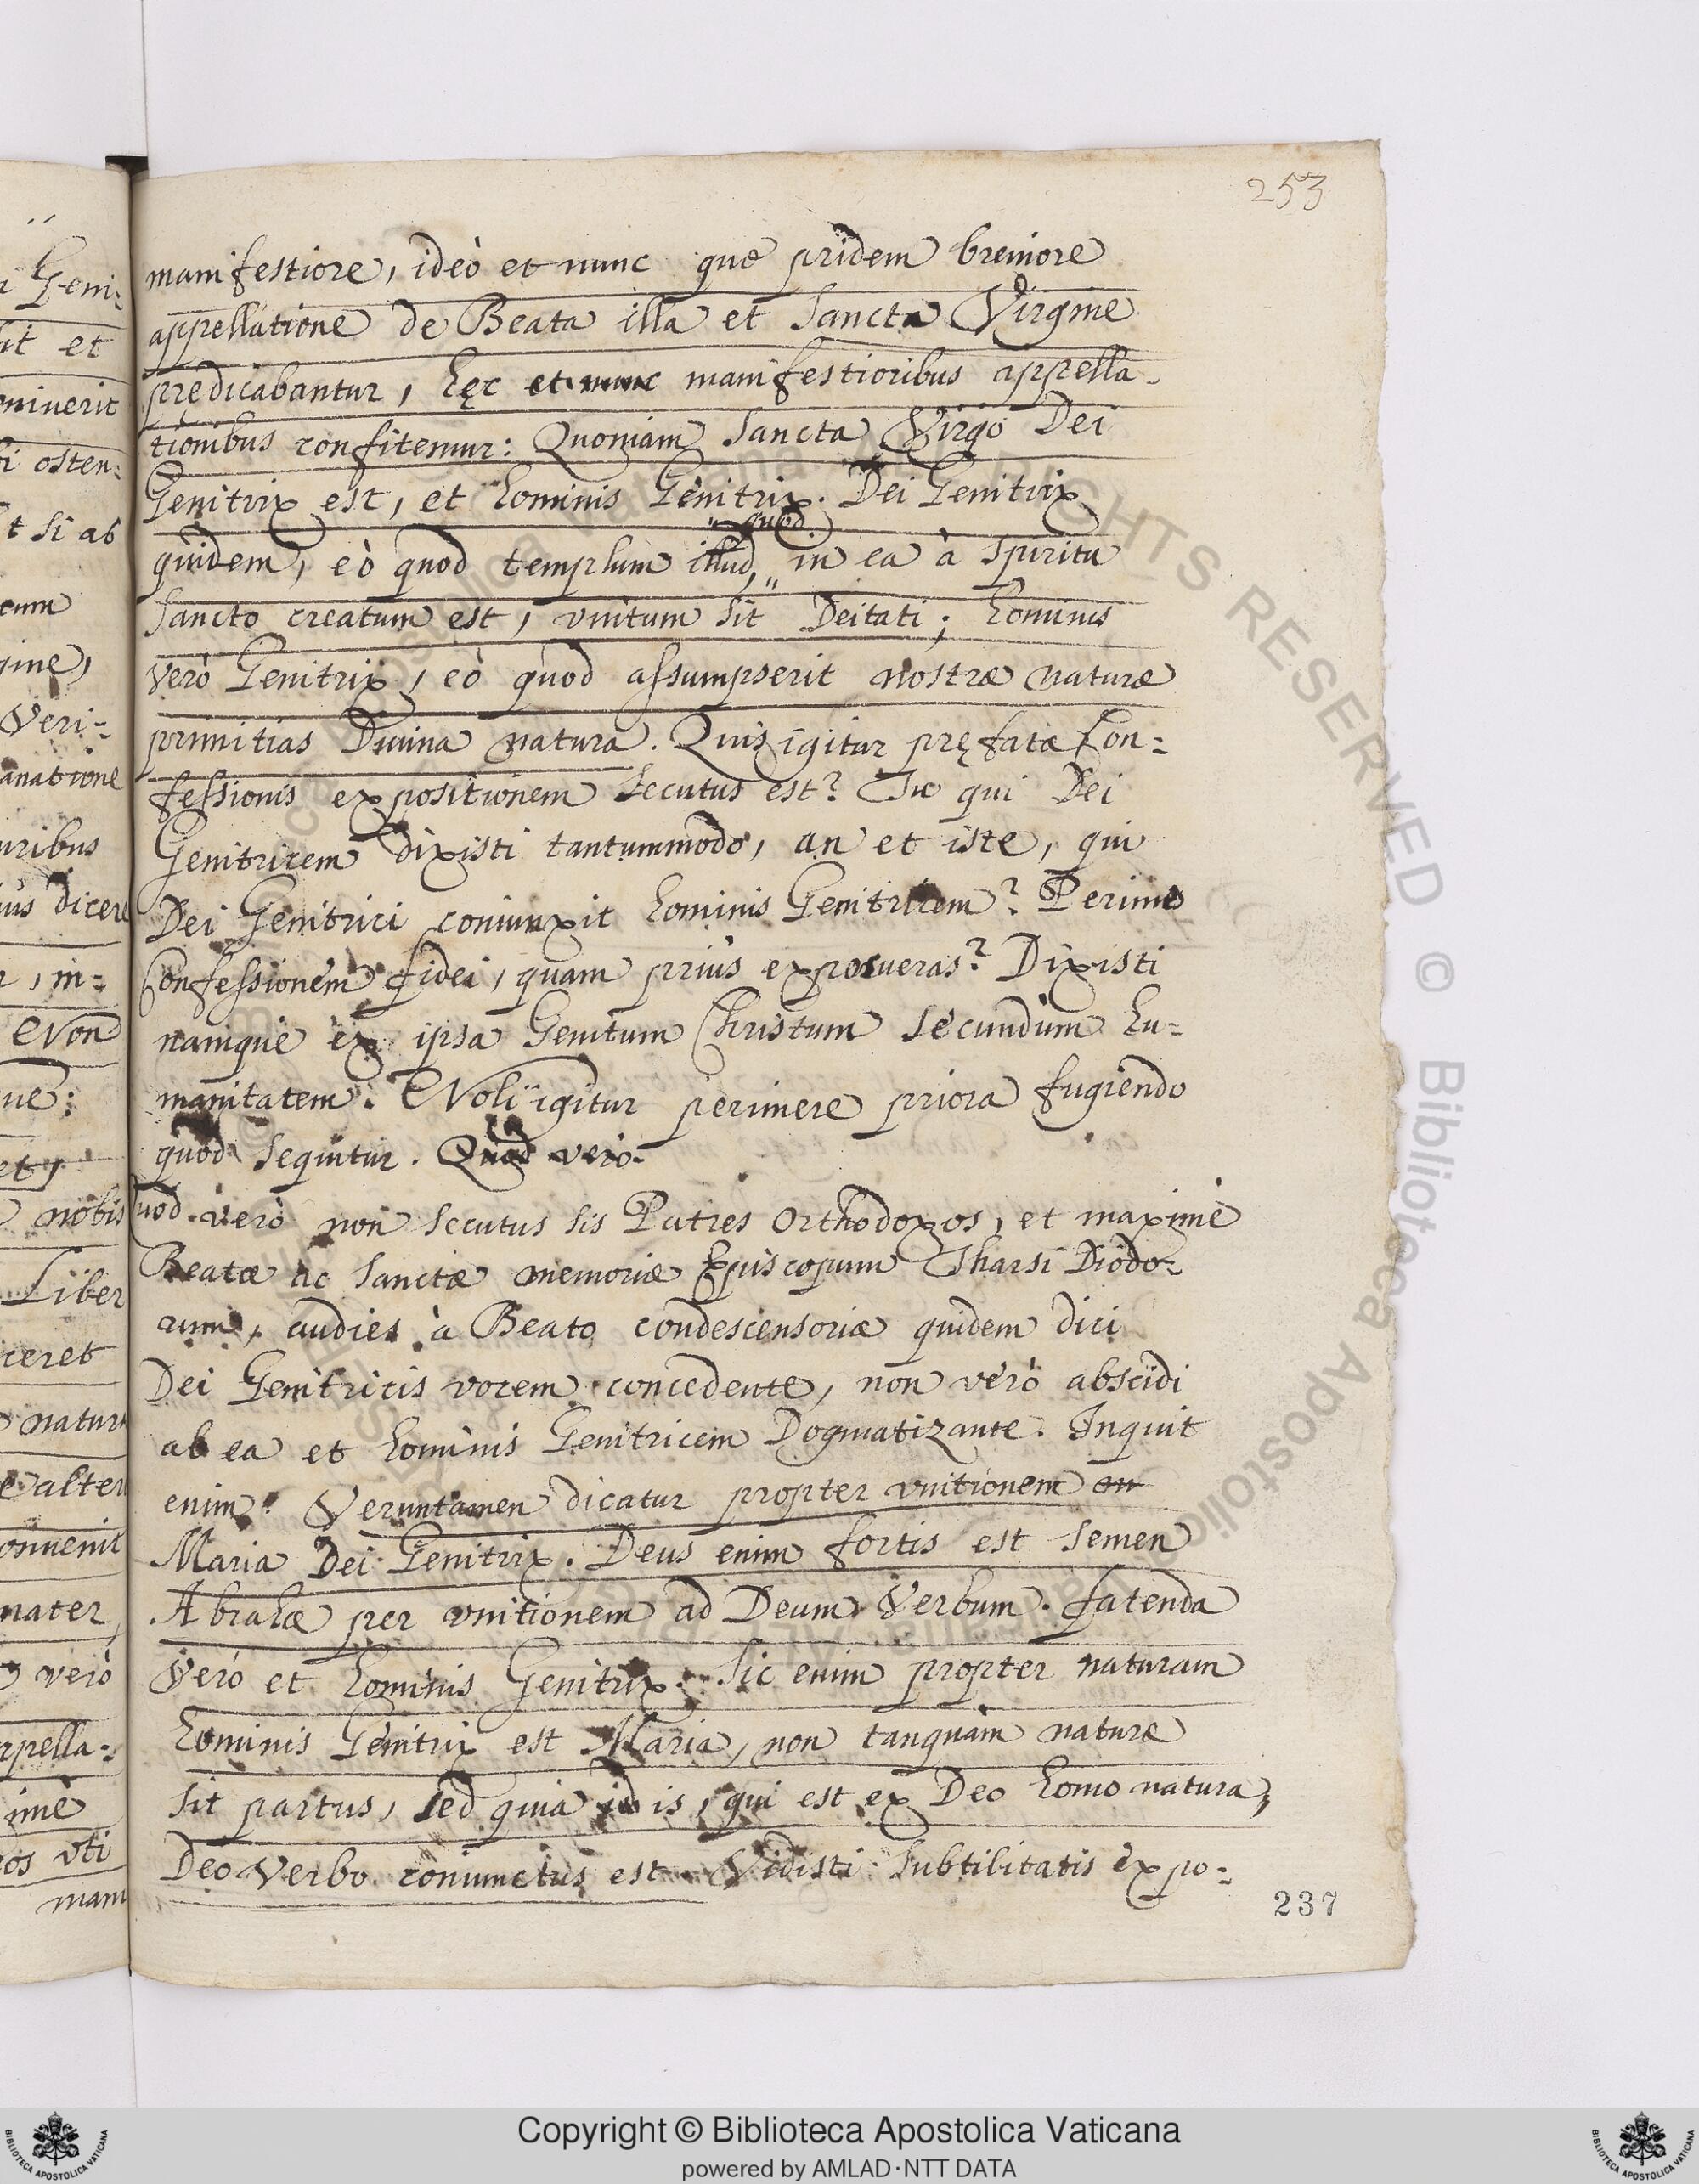 253
manifestiore, ideò et nunc quę pridem breuiore
appellatione de Beata illa et Sancta Virgine
prędicabantur, hęc et nunc manifestioribus appella-
tionibus confitemur: Quoniam Sancta Virgo Dei
Genitrix est, et hominis Genitrix. Dei Genitrix
quidem, eò quod templum illud, quod in ea à Spiritu
Sancto creatum est, vnitum sit Deitati; hominis
verò Genitrix, eò quod assumpserit nostræ naturæ
primitias Diuina natura. Quis igitur pręfatæ Con=
fessionis expositionem secutus est? Tu qui Dei
Genitricem dixisti tantummodo, an et iste, qui
Dei Genitrici coniunxit hominis Genitricem? Perimis
Confessionem fidei, quam priùs exposueras? Dixisti
namque ex ipsa Genitum Christum secundum hu=
manitatem. Noli igitur perimere priora fugiendo
quod sequitur. Quod verò
uod verò non secutus sis Patres Orthodoxos, et maximè
Beatæ ac Sanctæ memoriæ Episcopum Tharsi Diodo=
rum, audies à Beato condescensoriæ quidem dici
Dei Genitricis vocem concedente, non verò abscidi
ab ea et hominis Genitricem Dogmatizante. Inquit
enim: Veruntamen dicatur propter vnitionem
Maria Dei Genitrix. Deus enim fortis est semen
Abrahæ per vnitionem ad Deum Verbum. fatenda
verò et hominis Genitrix. Sic enim propter naturam
hominis Genitrix est Maria, non tanquàm naturæ
sit partus, sed quia is, qui est ex Deo homo natura,
Deo Verbo coniunctus est. Vidisti subtilitatis expo=
237
i Geni:
sit et
niuerit
fi osten:
t si ab
cum
gine,
Veri=
anatione
uribus
ius dicere
r, in=
Non
ue:
et,
nobis
Liber
ceret
natur
e alter
onuenit
mater,
verò
ppella=
imè
ros vti
mani
© Biblioteca Apostolica Vaticana
ALL RIGHTS RESERVED
Copyright © Biblioteca Apostolica Vaticana
powered by AMLAD·NTT DATA
BIBLIOTECA APOSTOLICA VATICANA
BIBLIOTECA APOSTOLICA VATICANA